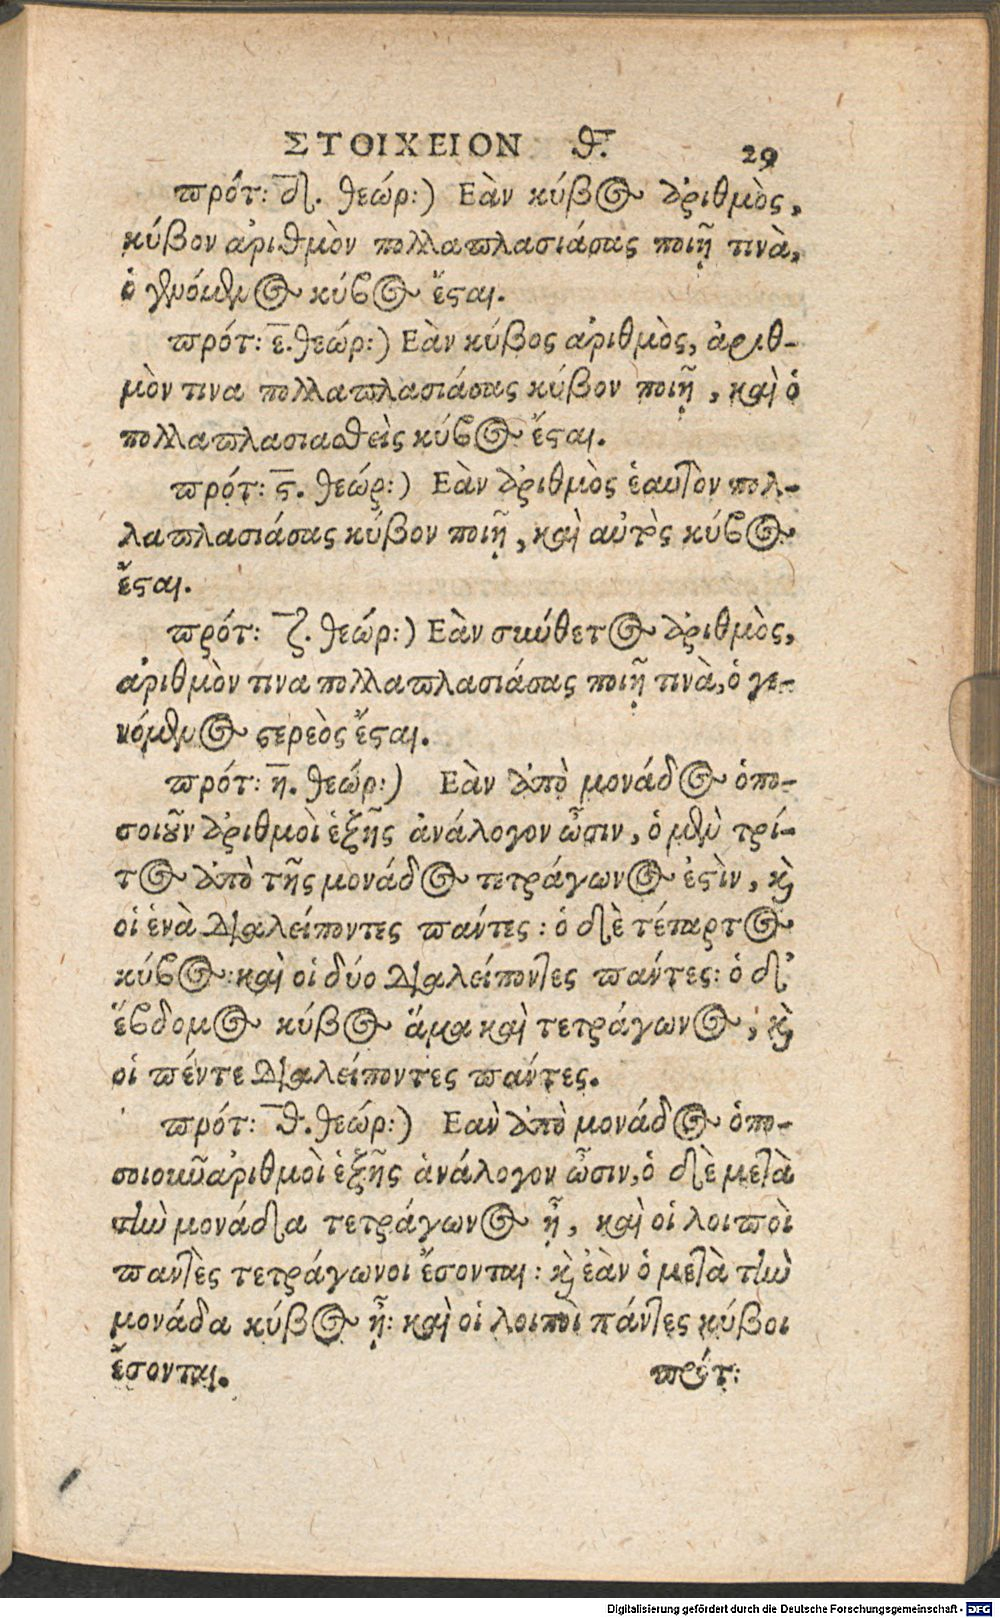 ΣΤΟΙΧΕΙΟΝ θ. 29
πρότ: δ. θεώρ:) Εὰν κύβος ἀριθμὸς,
κύβον ἀριθμὸν πολλαπλασιάσας ποιῇ τινὰ,
ὁ γενόμενος κύβος ἔσαι.
πρότ: ε. θεώρ:) Εὰν κύβος ἀριθμὸς, ἀριθ-
μὸν τινα πολλαπλασιάσας κύβον ποιῇ, καὶ ὁ
πολλαπλασιασθεὶς κύβος ἔσαι.
πρότ: ϛ. θεώρ:) Εὰν ἀριθμὸς ἑαυτὸν πολ-
λαπλασιάσας κύβον ποιῇ, καὶ αὐτὸς κύβος
ἔσαι.
πρότ: ζ. θεώρ:) Εὰν σύνθετος ἀριθμὸς,
ἀριθμὸν τινα πολλαπλασιάσας ποιῇ τινὰ, ὁ γε-
νόμενος στερεὸς ἔσαι.
πρότ: η. θεώρ:) Εὰν ἀπὸ μονάδος ὁπο-
σοιοῦν ἀριθμοὶ ἑξῆς ἀνάλογον ὦσιν, ὁ μὲν τρί-
τος ἀπὸ τῆς μονάδος τετράγωνος ἐστὶν, καὶ
οἱ ἑνὰ διαλείποντες πάντες: ὁ δὲ τέταρτος
κύβος: καὶ οἱ δύο διαλείποντες πάντες: ὁ δ'
ἕβδομος κύβος ἅμα καὶ τετράγωνος, καὶ
οἱ πέντε διαλείποντες πάντες.
πρότ: θ. θεώρ:) Εαν ἀπὸ μονάδος ὁπο-
σοιοκῦ ἀριθμοὶ ἑξῆς ἀνάλογον ὦσιν, ὁ δὲ μετὰ
τὴν μονάδα τετράγωνος ᾖ, καὶ οἱ λοιποὶ
παντὲς τετράγωνοι ἔσονται: καὶ ἐὰν ὁ μετὰ τὴν
μονάδα κύβος ᾖ: καὶ οἱ λοιποὶ πάντες κύβοι
ἔσονται. πρότ:
Digitalisierung gefördert durch die Deutsche Forschungsgemeinschaft - DFG